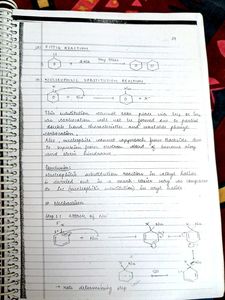 FITTIG REACTION
+ 2Na Dry Ether
NUCLEOPHILIC SUBSTITUTION REACTION
X Nu
+ Nu → + X⁻
This substitution cannot take place via SN1 or SN2
as carbocation will not be formed due to partial
double bond characteristics and unstable phenyl
carbocation.
Also, nucleophile cannot approach from backside due
to repulsion from electron cloud of benzene ring
and steric hindrance.
Conclusion:
Nucleophilic substitution reaction in alkyl halides
is carried out in a much easier way as compared
to SN (nucleophilic substitution) in aryl halides
Mechanism
Step 1: Attack of Nu⁻
X + Nu → X Nu X Nu
X Nu
→ rate determining step